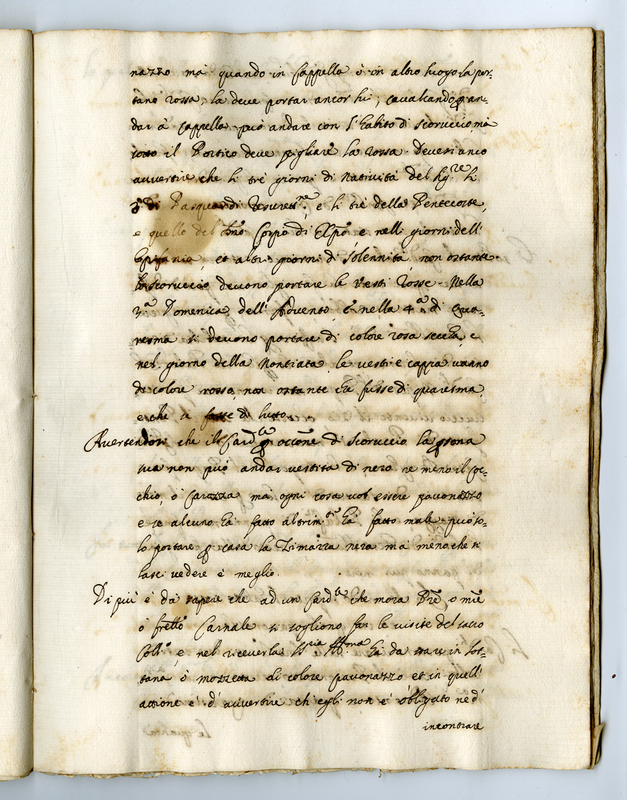 nazzo ma quando in Cappella o in altro luogo la por-
tano rossa, la deve portar ancor lui, cavalcando p an-
dar à Cappella può andare con l'habito di scoruccio mà
sotto il Portico deve pigliare la rossa. Devesi anco
avvertire che li trè giorni di Natività del li
3 di Pasqua di e li trè della Pentecoste,
e quello del Corpo di Xpo e nelli giorni dell'
Epifania, et altri giorni di solennità, non ostante
lo scoruccio devono portare le Vesti rosse. Nella
3.a Domenica dell'Advento, e nella 4.a di Qua-
resma si devono portare di colore rosa secca, e
nel giorno della Nontiata le vesti e cappa vanno
di colore rosso, non ostante che fusse di quaresma,
e che si fosse di lutto.
Avertendosi che il Card.le p occ.ne di scoruccio la psona
sua non può andar vestita di nero ne meno il coc-
chio, ò carozza mà ogni cosa vol essere pavonazzo
e se alcuno hà fatto altrim.ti hà fatto male può so-
lo portare p casa la Zimarra nera ma meno che si
lasci vedere è meglio.
Di più è da sapere che ad un Card.le che mora Pre, o mre
ò frello Carnale si sogliono far le visite del sacro
Coll.o, e nel riceverle hà da stare in sot-
tana ò mozzetta di colore pavonazzo et in quell'
attione è d'avvertire ch'egli non è obligato ne d'
incontrare